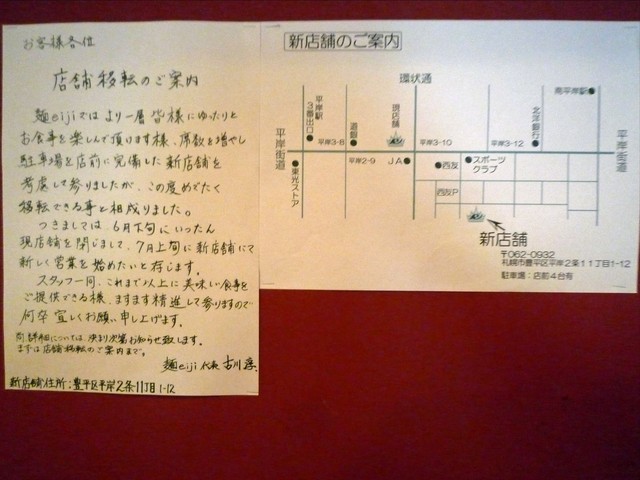 お客様各位
店舗移転のご案内
麺eijiでは より一層 皆様にゆったりと
お食事を楽しんで頂けます様、席数を増やし
駐車場を店前に完備した新店舗を
考慮して参りましたが、この度めでたく
移転できる事と相成りました。
つきましては、6月下旬にいったん
現店舗を閉じまして、7月上旬に新店舗にて
新しく営業を始めたいと存じます。
スタッフ一同、これまで以上に美味しい食事を
ご提供できる様、ますます精進して参りますので
何卒宜しくお願い申し上げます。
尚、詳細については、決まり次第お知らせ致します。
まずは店舗移転のご案内まで。
麺eiji 代表 古川 淳
新店舗住所:豊平区平岸2条11丁目1-12
新店舗のご案内
環状通
南平岸駅
平岸駅
3番出口
道銀
現店舗
北洋銀行
平岸街道
平岸3-8
平岸3-10
平岸3-12
平岸街道
平岸2-9
JA
西友
スポーツ
クラブ
東光ストア
西友P
新店舗
〒062-0932
札幌市豊平区平岸2条11丁目1-12
駐車場:店前4台有